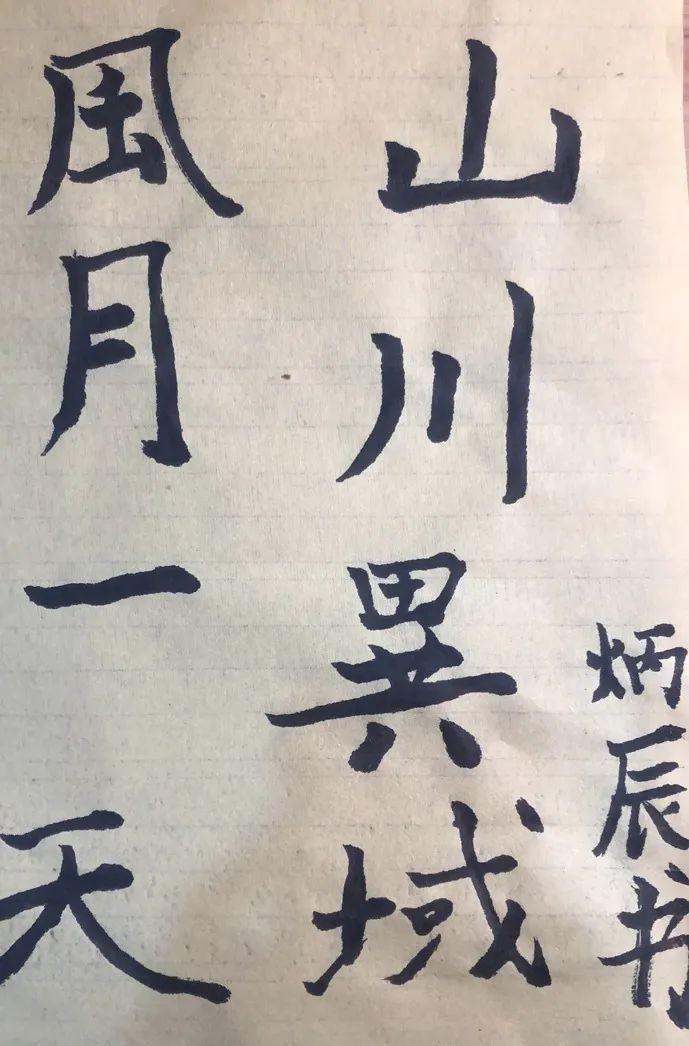 山川異域
風月一天
炳辰书